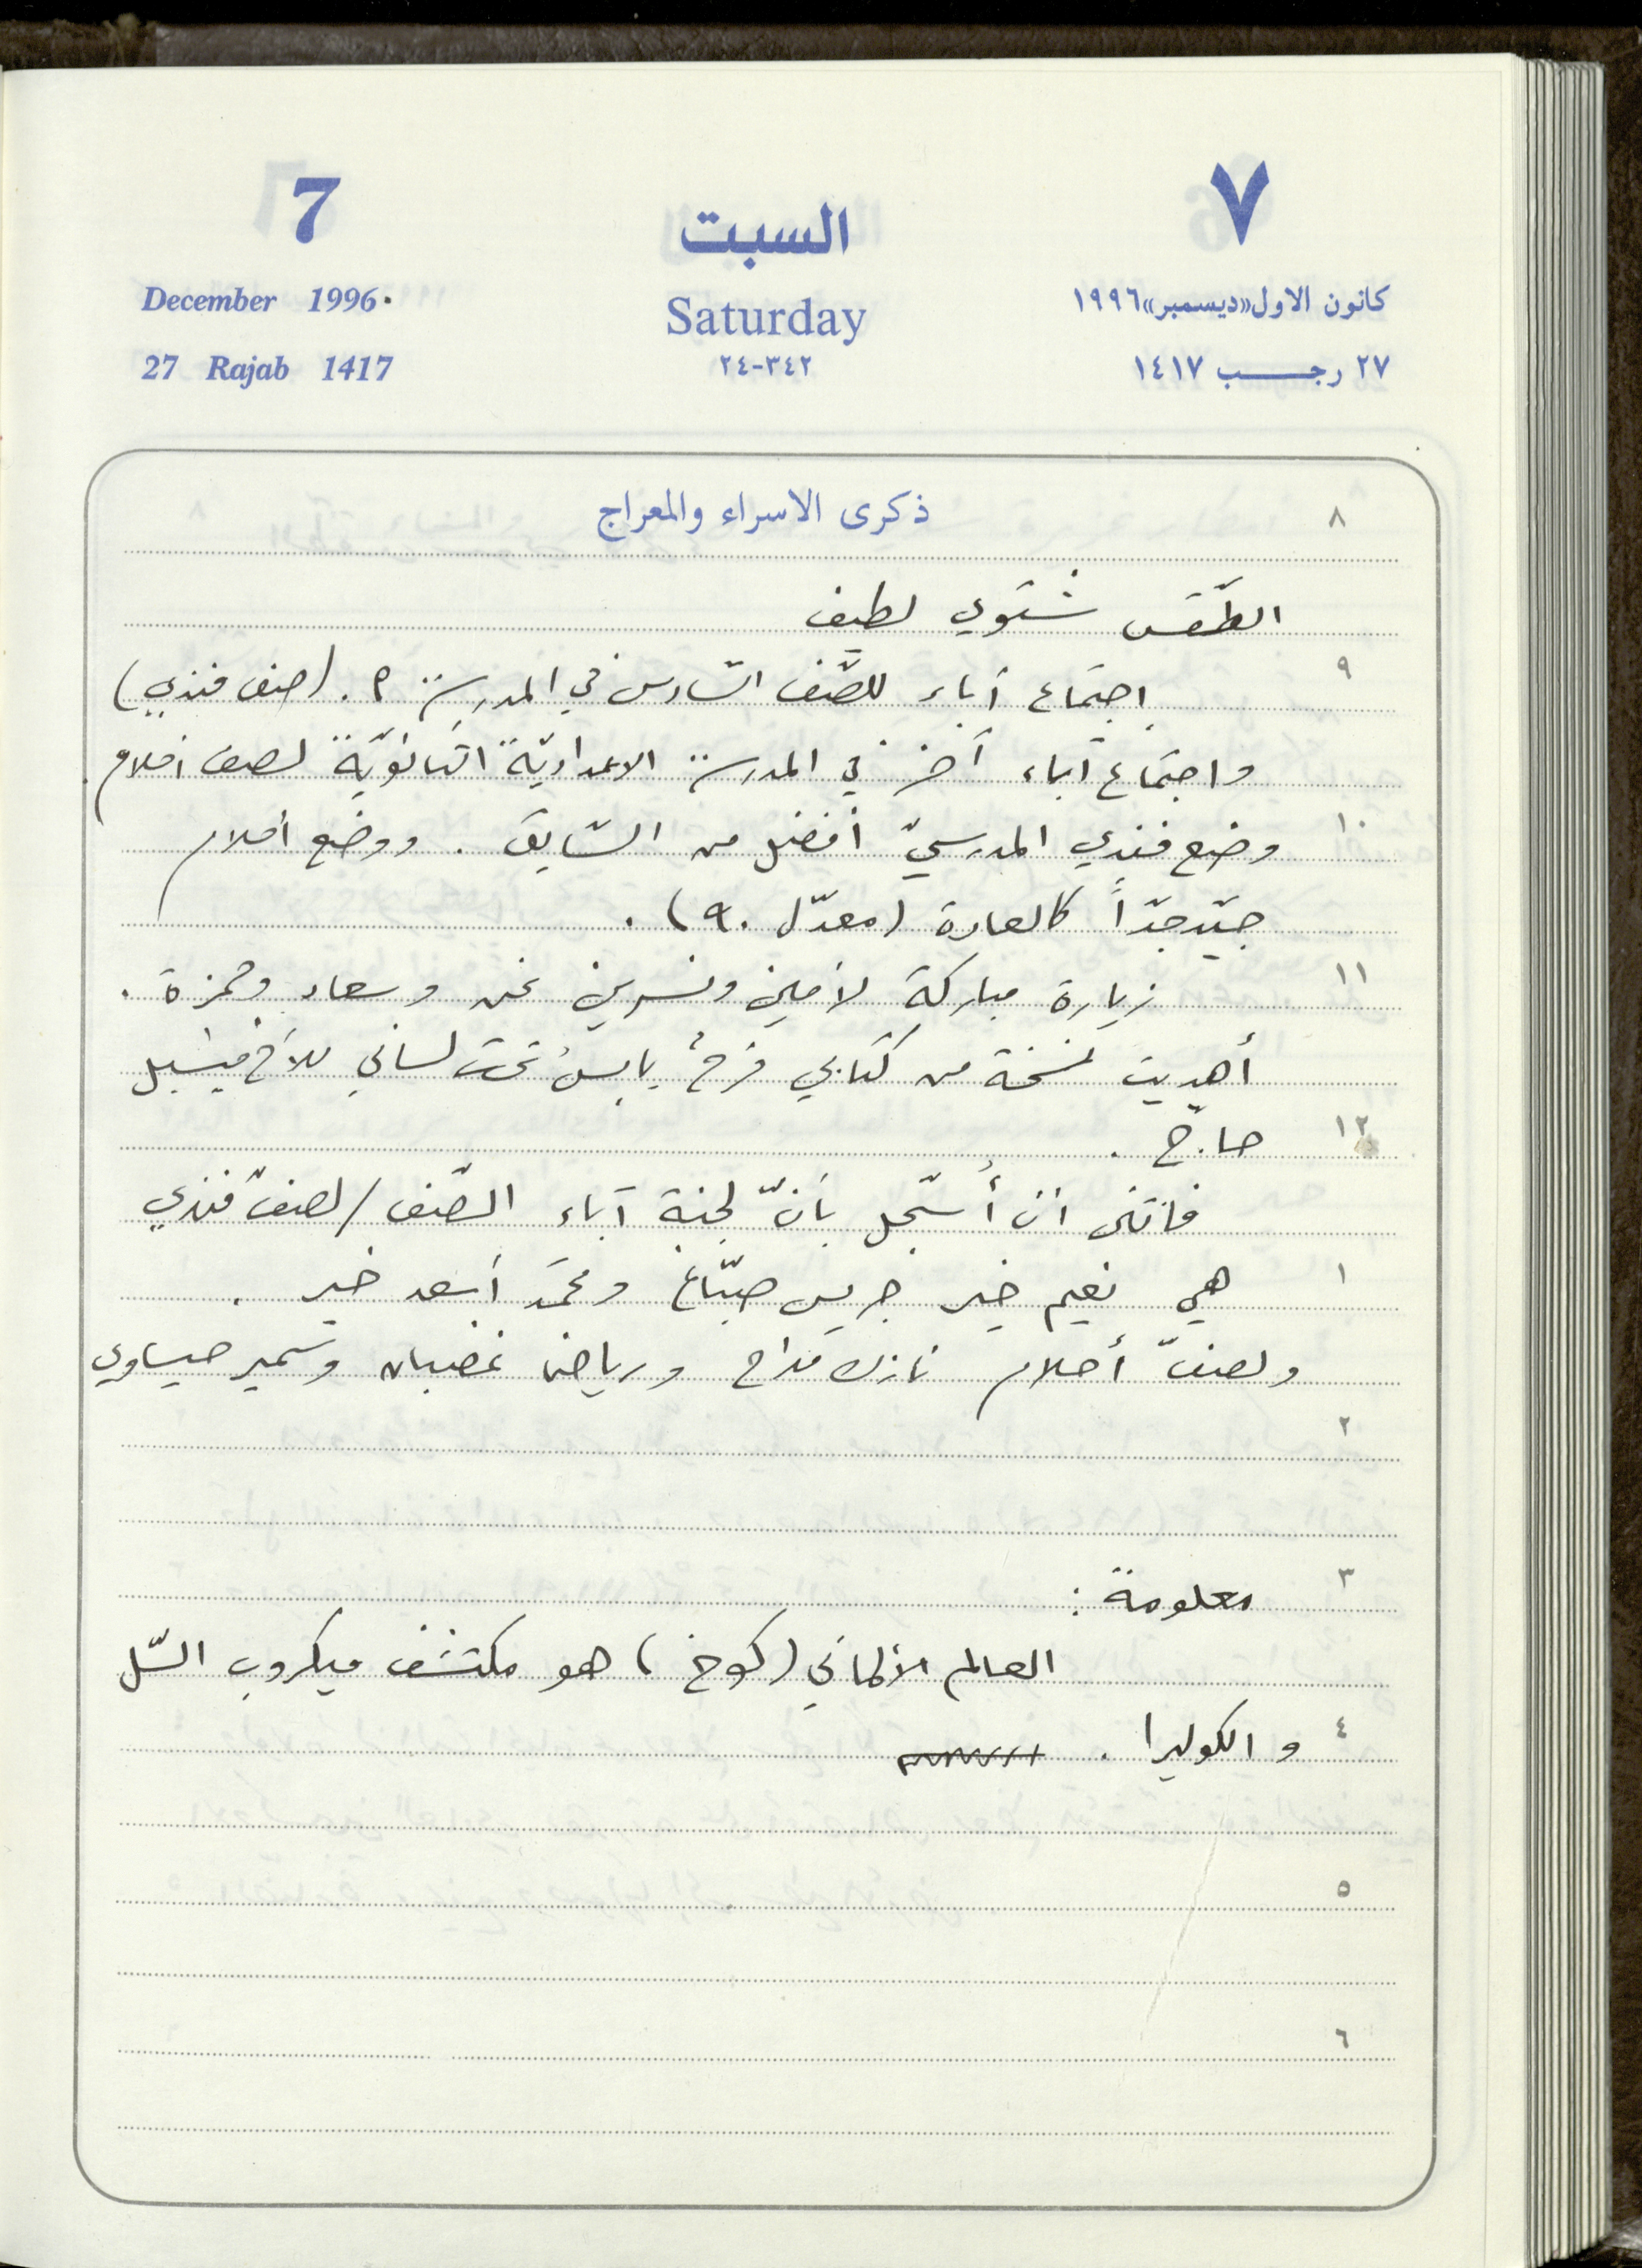 7 السبت ٧
December 1996 Saturday كانون الاول «ديسمبر» ١٩٩٦
27 Rajab 1417 ٣٤٢-٢٤ ٢٧ رجب ١٤١٧
٨ ذكرى الاسراء والمعراج
الطّقس شتوي لطيف
٩ اجتماع آباء للصّف السّادس في المدرسة م. (صف فندي)
واجتماع آباء آخر في المدرسة الاعداديّة الثّانويّة لصف احلام.
١٠ وضع فندي المدرسيّ أفضل من السّابق. ووضع أحلام
جيّد جدّاً كالعادة (معدّل ٩٠).
١١ زيارة مباركة لأمين ونسرين نحن وسعاد وحمزة.
أهديت نسخة من كتابي فرحٌ يابسٌ تحت لساني للأخ ميشيل
١٢ حاج.
فاتني ان أُسجّل بأنّ لجنة آباء الصّف / لصفّ فندي
١ هي نعيم خير جريس صبّاغ ومحمّد أسعد خير.
ولصفّ أحلام نازك مداح ورياض غضبان وسمير عيساوي
٢
٣ معلومة:
العالم الألماني (كوخ) هو مكتشف ميكروب السّل
٤ والكوليرا.
٥
٦